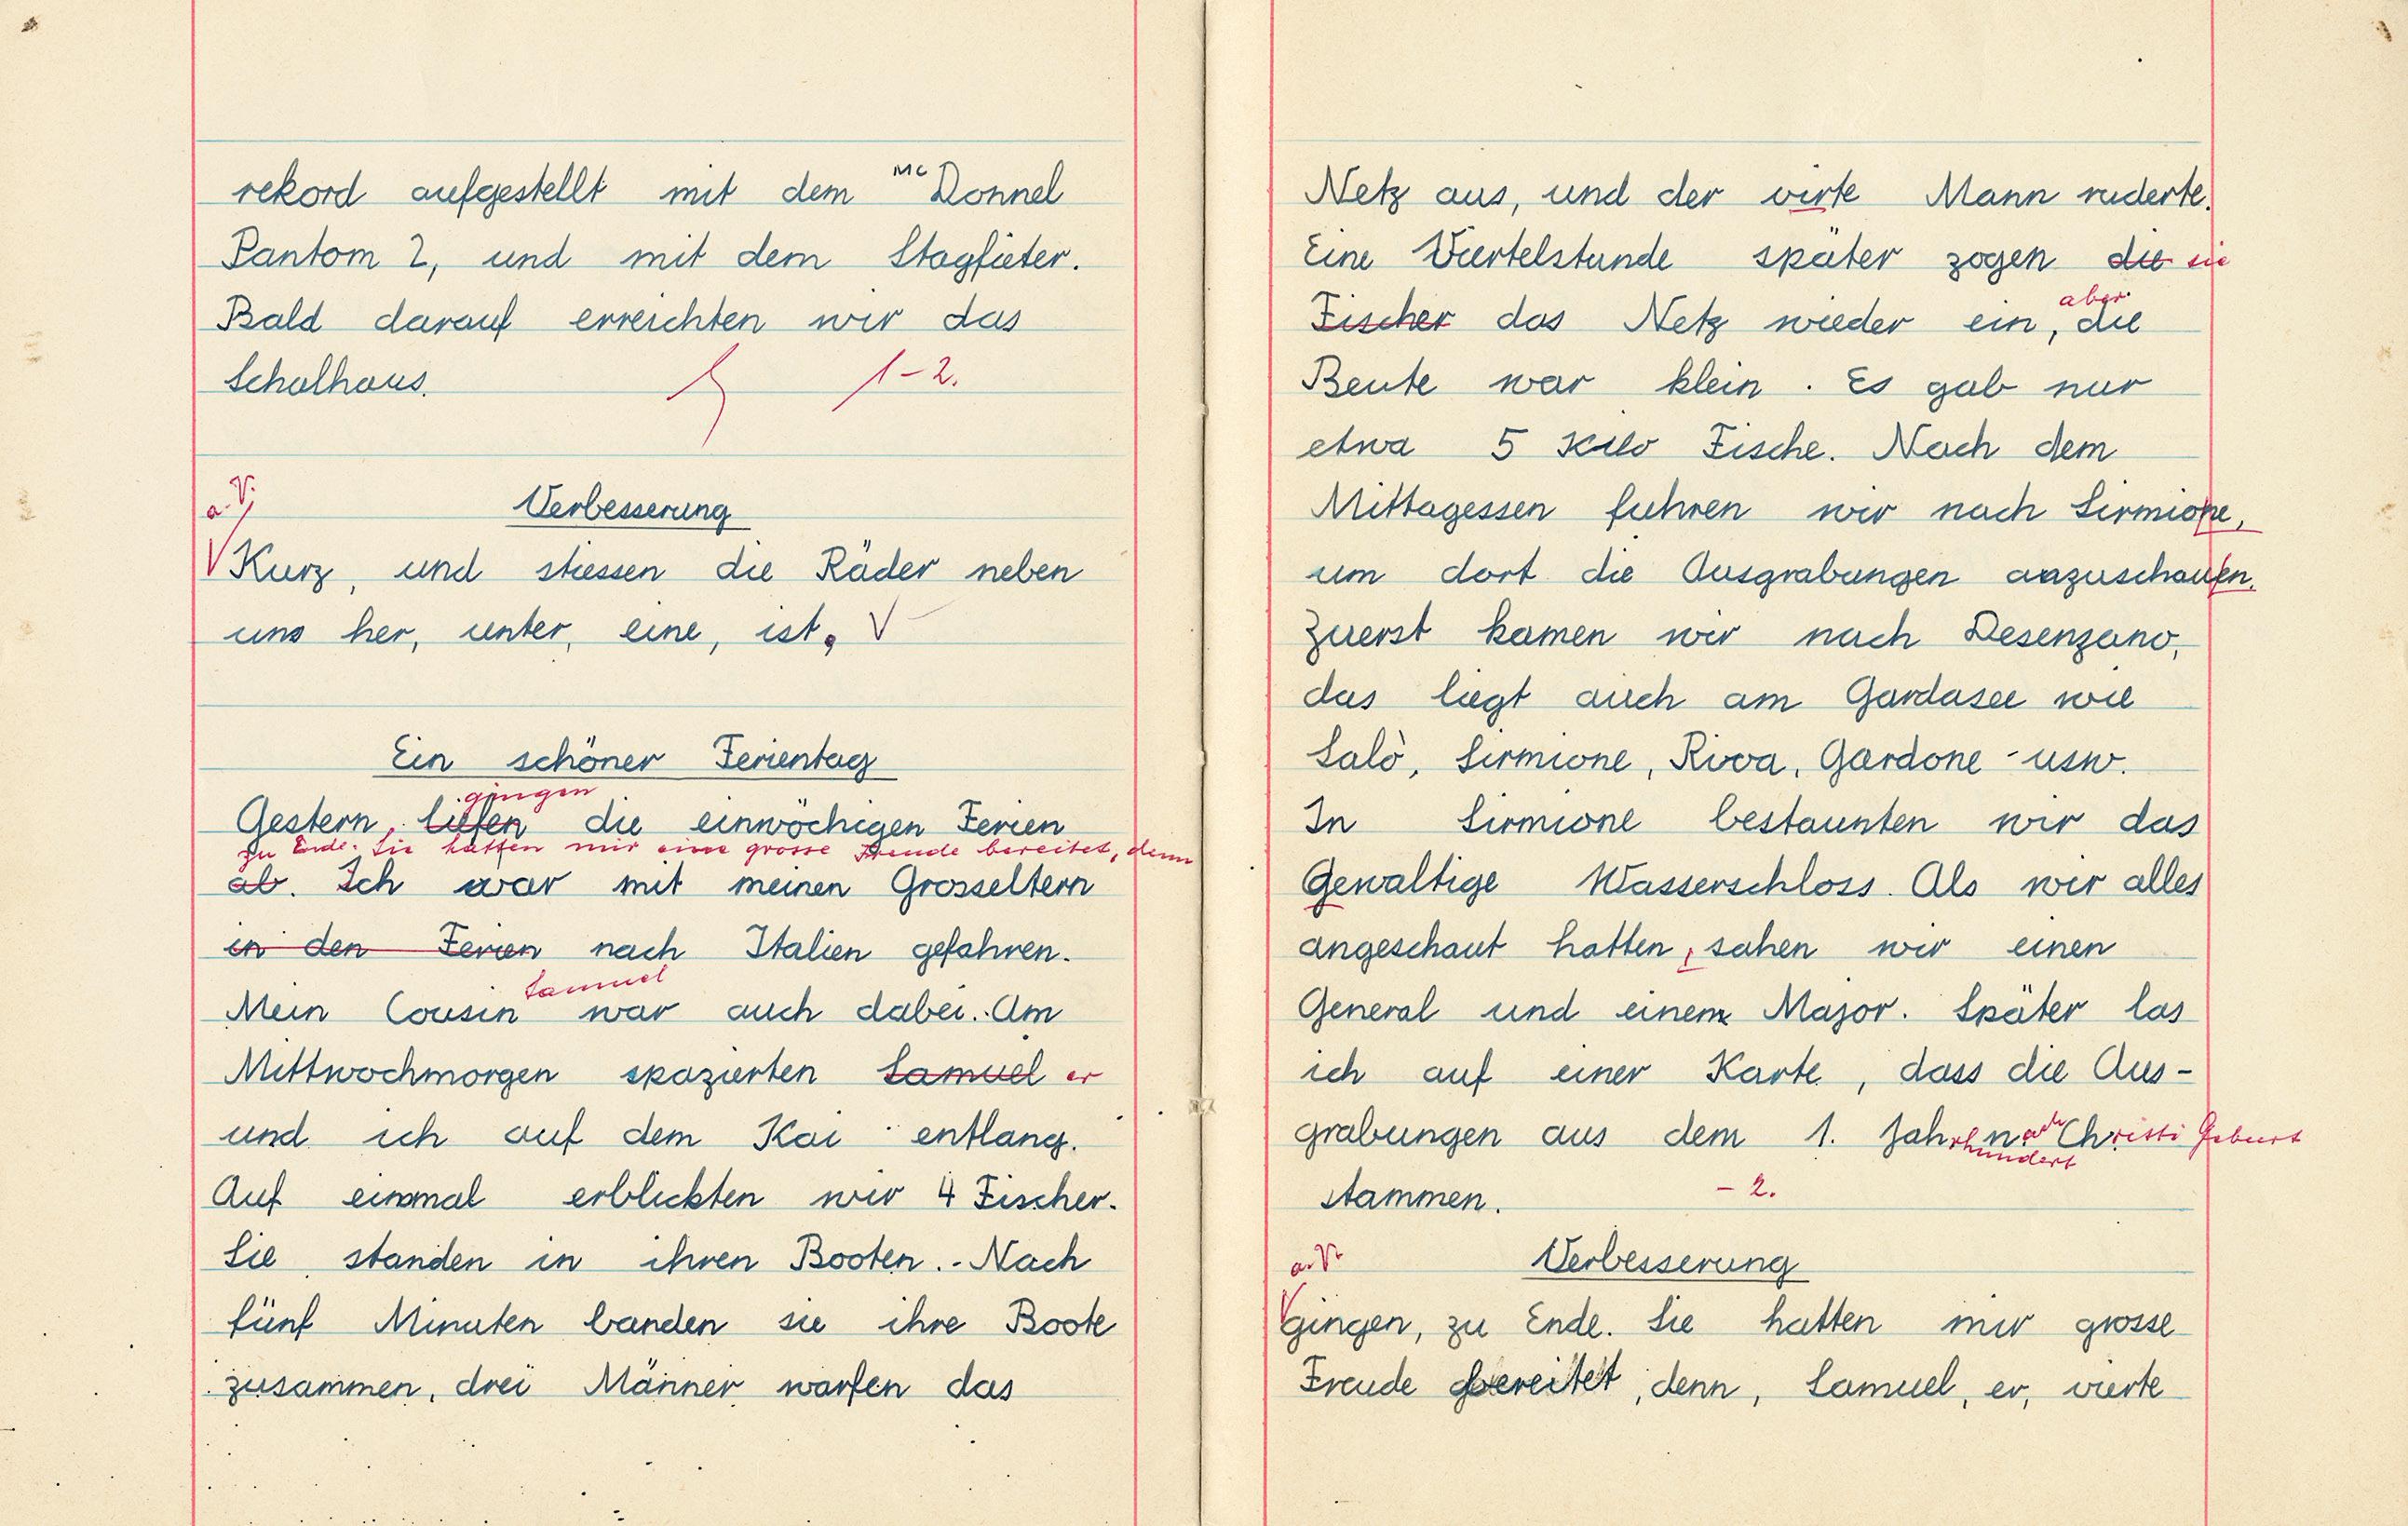 rekord aufgestellt mit dem Mc Donnel
Pantom 2, und mit dem Stagfieter.
Bald darauf erreichten wir das
Schulhaus.
1-2.
a. V.
Verbesserung
Kurz, und stiessen die Räder neben
uns her, unter, eine, ist.
Ein schöner Ferientag
gingen
Gestern, liefen die einwöchigen Ferien
zu Ende. Sie hatten mir eine grosse Freude bereitet, denn
ab. Ich war mit meinen Grosseltern
in den Ferien nach Italien gefahren.
Samuel
Mein Cousin war auch dabei. Am
Mittwochmorgen spazierten Samuel er
und ich auf dem Kai entlang.
Auf einmal erblickten wir 4 Fischer.
Sie standen in ihren Booten. Nach
fünf Minuten banden sie ihre Boote
zusammen, drei Männer warfen das
Netz aus, und der virte Mann ruderte.
Eine Viertelstunde später zogen die sie
aber
Fischer das Netz wieder ein, die
Beute war klein. Es gab nur
etwa 5 Kilo Fische. Nach dem
Mittagessen fuhren wir nach Sirmione,
um dort die Ausgrabungen anzuschauen.
Zuerst kamen wir nach Desenzano,
das liegt auch am Gardasee wie
Salò, Sirmione, Riva, Gardone usw.
In Sirmione bestaunten wir das
Gewaltige Wasserschloss. Als wir alles
angeschaut hatten, sahen wir einen
General und einem Major. Später las
ich auf einer Karte, dass die Aus-
grabungen aus dem 1. Jahrhundert nach Christi Geburt
stammen.
- 2.
a. V.
Verbesserung
Gingen, zu Ende. Sie hatten mir grosse
Freude bereitet, denn, Samuel, er, vierte